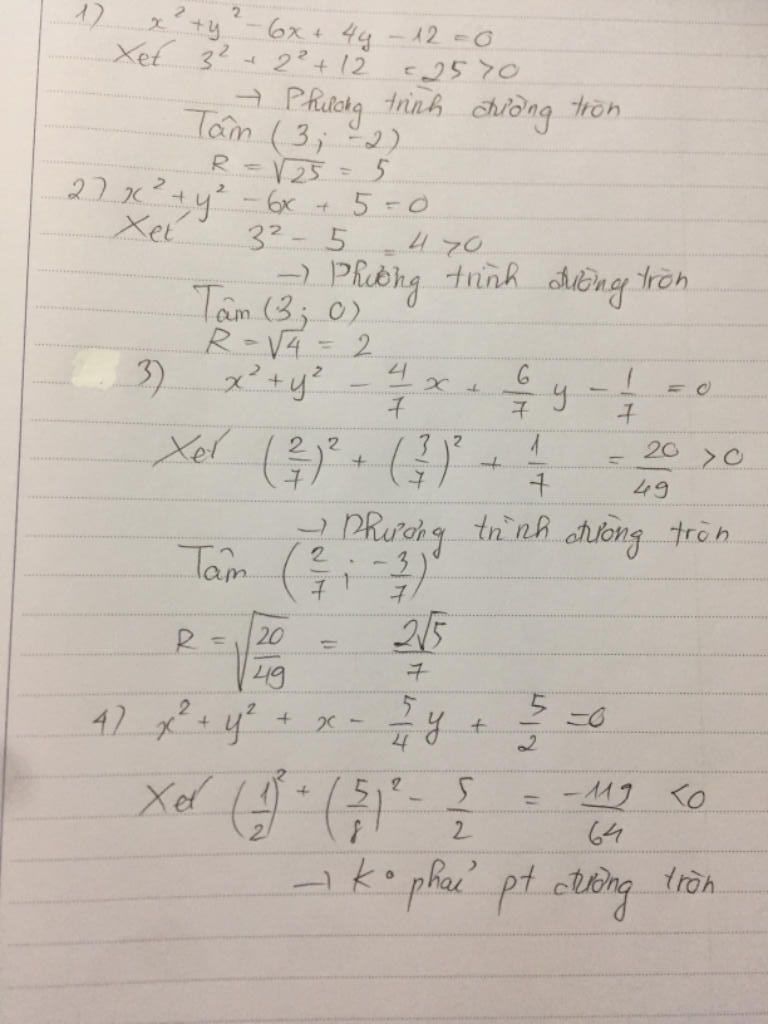 1) x² + y² - 6x + 4y - 12 = 0
Xét 3² + 2² + 12 = 25 > 0
→ Phương trình đường tròn
Tâm (3; -2)
R = √25 = 5
2) x² + y² - 6x + 5 = 0
Xét 3² - 5 = 4 > 0
→ Phương trình đường tròn
Tâm (3; 0)
R = √4 = 2
3) x² + y² - 4/7 x + 6/7 y - 1/7 = 0
Xét (2/7)² + (3/7)² + 1/7 = 20/49 > 0
→ Phương trình đường tròn
Tâm (2/7; -3/7)
R = √(20/49) = 2√5/7
4) x² + y² + x - 5/4 y + 5/2 = 0
Xét (1/2)² + (5/8)² - 5/2 = -119/64 < 0
→ K° phải pt đường tròn